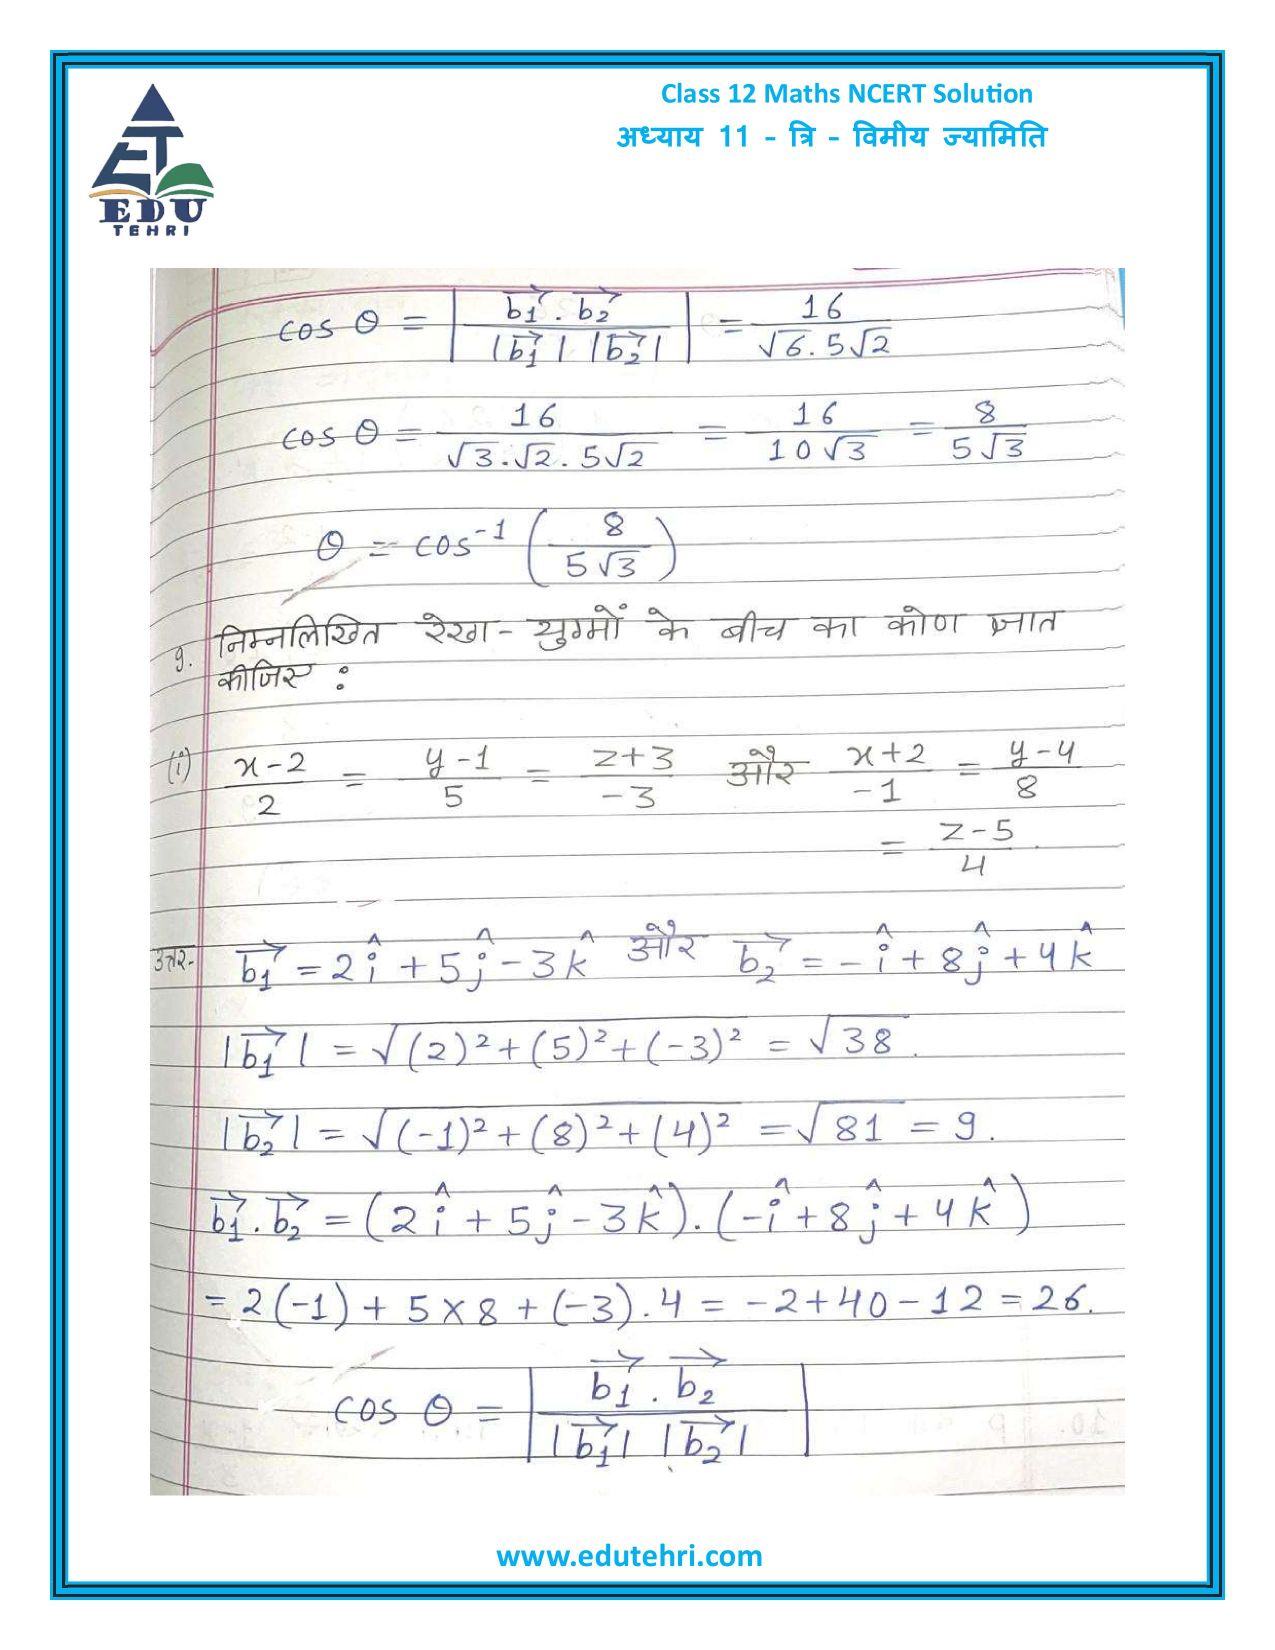 Class 12 Maths NCERT Solution
अध्याय 11 - त्रि - विमीय ज्यामिति
EDU
TEHRI
cos θ = | b₁⃗ . b₂⃗ / |b₁⃗| |b₂⃗| | = 16 / √6 . 5√2
cos θ = 16 / √3 . √2 . 5√2 = 16 / 10√3 = 8 / 5√3
θ = cos⁻¹ ( 8 / 5√3 )
9. निम्नलिखित रेखा - युग्मों के बीच का कोण ज्ञात
कीजिए :
(i) x-2 / 2 = y-1 / 5 = z+3 / -3 और x+2 / -1 = y-4 / 8
= z-5 / 4 .
उत्तर- b₁⃗ = 2î + 5ĵ - 3k̂ और b₂⃗ = -î + 8ĵ + 4k̂
|b₁⃗| = √(2)² + (5)² + (-3)² = √38 .
|b₂⃗| = √(-1)² + (8)² + (4)² = √81 = 9 .
b₁⃗ . b₂⃗ = (2î + 5ĵ - 3k̂) . (-î + 8ĵ + 4k̂)
= 2(-1) + 5×8 + (-3) . 4 = -2+40-12 = 26.
cos θ = | b₁⃗ . b₂⃗ / |b₁⃗| |b₂⃗| |
www.edutehri.com